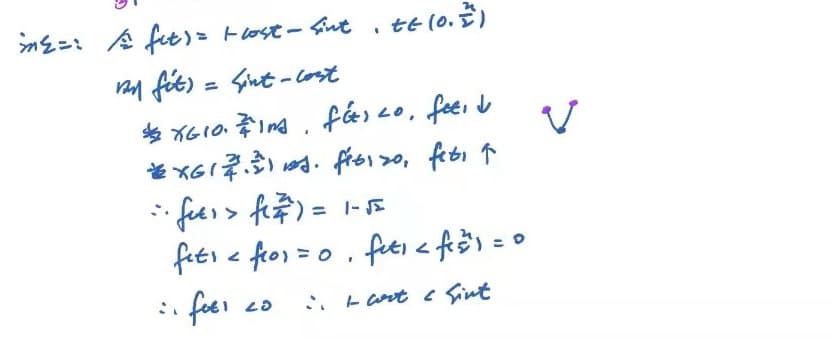 证法二: 令 f(t) = 1-cost - sint , t∈(0, π/2)
则 f'(t) = sint - cost
当 x∈(0, π/4)时, f'(t) <0, f(t) ↓
当 x∈(π/4, π/2)时, f'(t) >0, f(t) ↑
∴ f(t) > f(π/4) = 1-√2
f(t) < f(0) = 0 , f(t) < f(π/2) = 0
∴ f(t) <0 ∴ 1-cost < sint